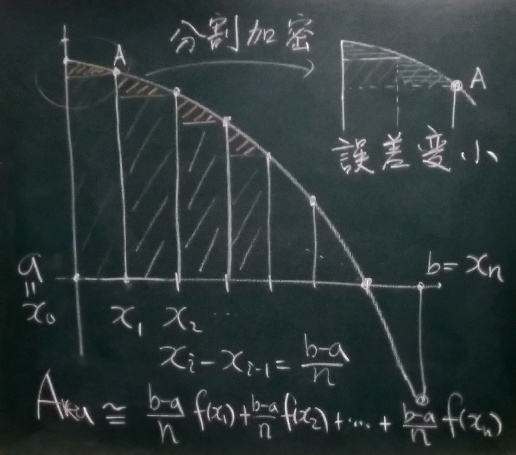 分割加密
A
A
誤差変小
a
=
x₀
x₁ x₂ ...
b = xₙ
xᵢ - xᵢ₋₁ = (b-a)/n
≅ (b-a)/n f(x₁) + (b-a)/n f(x₂) + ... + (b-a)/n f(xₙ)